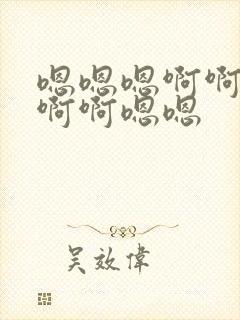 嗯嗯嗯啊啊
啊啊嗯嗯
吴效偉